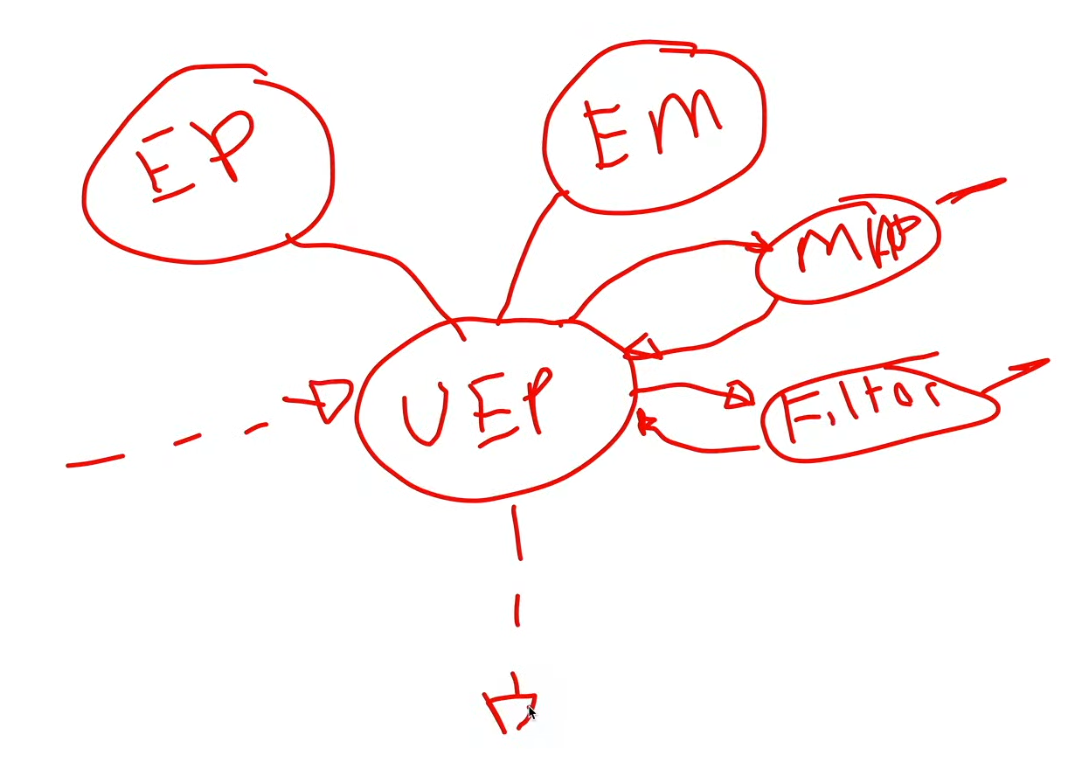 EP
EM
MAP
UEP
Filtor